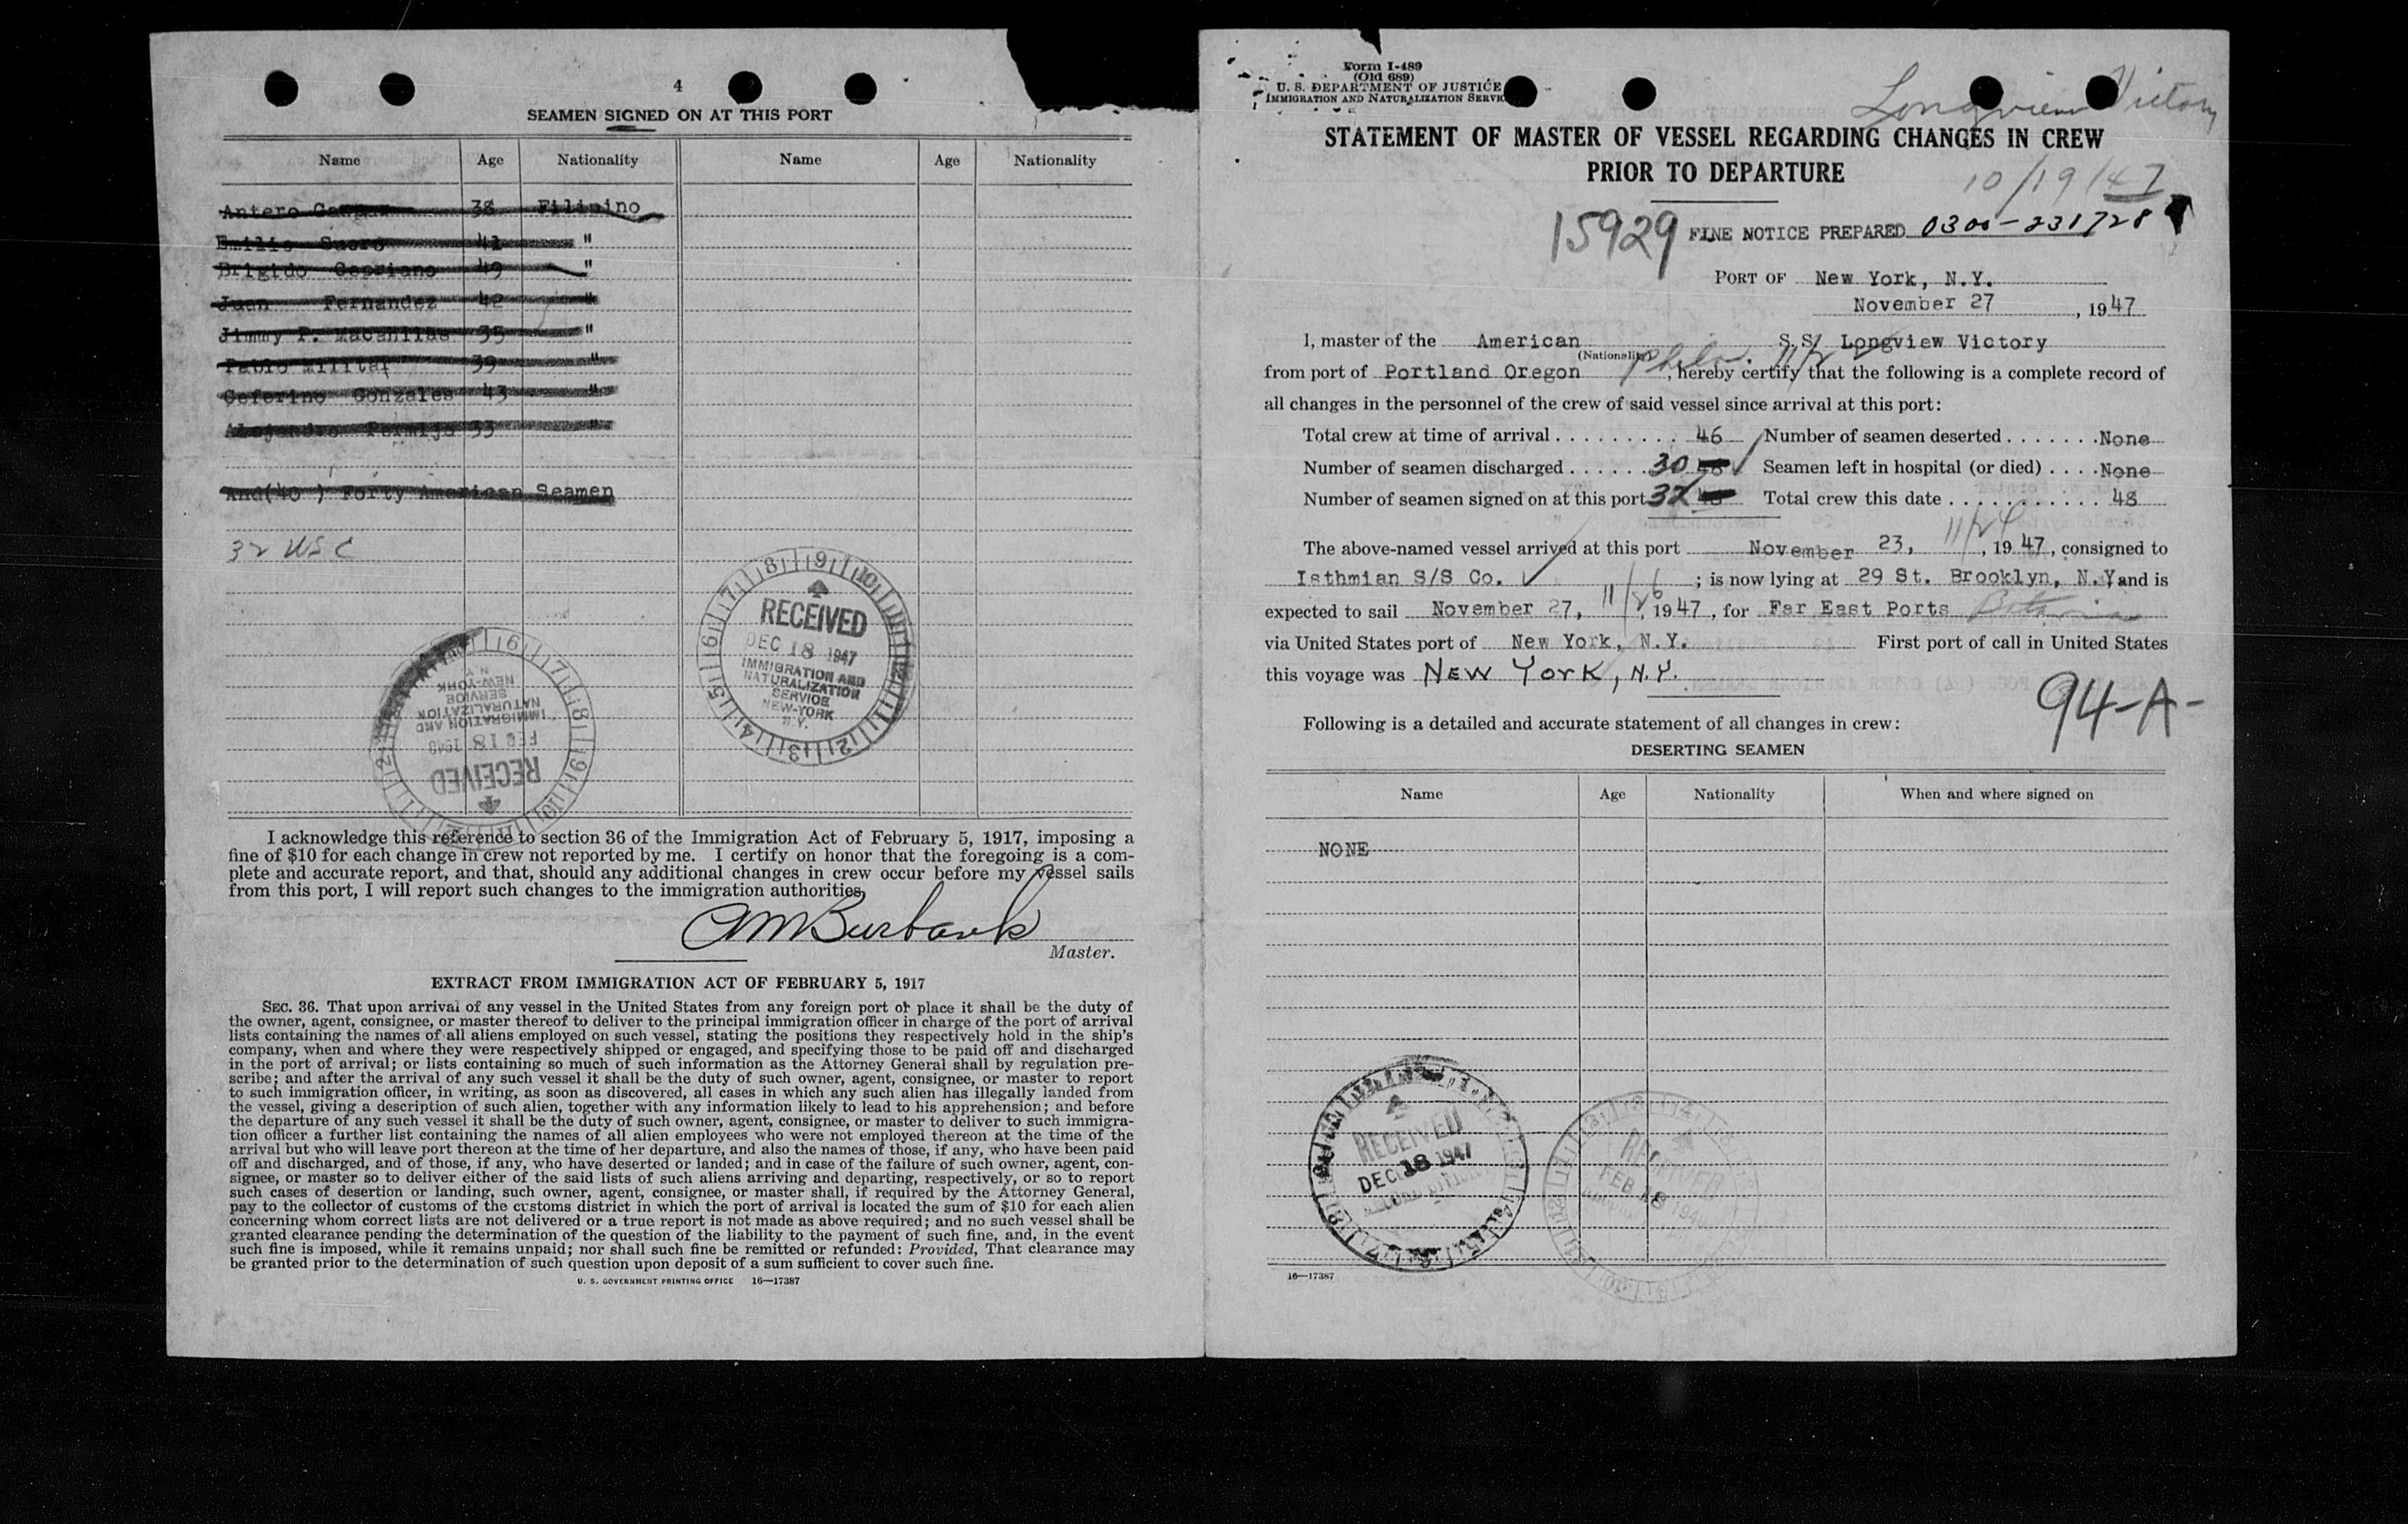 4
SEAMEN SIGNED ON AT THIS PORT
Name Age Nationality Name Age Nationality
Antero 38 Filipino
Emilio 41 "
Brigido 49 "
Juan Fernandez 42 "
Jimmy P. 35 "
Pablo Militar 39 "
Ceferino Gonzales 43 "
Alejandro 33 "
And (40 ) Forty American Seamen
32 USC
RECEIVED
DEC 18 1947
IMMIGRATION AND
NATURALIZATION
SERVICE
NEW-YORK
N.Y.
RECEIVED
FEB 18 1948
IMMIGRATION AND
NATURALIZATION
SERVICE
NEW-YORK
N.Y.
I acknowledge this reference to section 36 of the Immigration Act of February 5, 1917, imposing a
fine of $10 for each change in crew not reported by me. I certify on honor that the foregoing is a com-
plete and accurate report, and that, should any additional changes in crew occur before my vessel sails
from this port, I will report such changes to the immigration authorities.
AM Burbank
Master.
EXTRACT FROM IMMIGRATION ACT OF FEBRUARY 5, 1917
SEC. 36. That upon arrival of any vessel in the United States from any foreign port or place it shall be the duty of
the owner, agent, consignee, or master thereof to deliver to the principal immigration officer in charge of the port of arrival
lists containing the names of all aliens employed on such vessel, stating the positions they respectively hold in the ship's
company, when and where they were respectively shipped or engaged, and specifying those to be paid off and discharged
in the port of arrival; or lists containing so much of such information as the Attorney General shall by regulation pre-
scribe; and after the arrival of any such vessel it shall be the duty of such owner, agent, consignee, or master to report
to such immigration officer, in writing, as soon as discovered, all cases in which any such alien has illegally landed from
the vessel, giving a description of such alien, together with any information likely to lead to his apprehension; and before
the departure of any such vessel it shall be the duty of such owner, agent, consignee, or master to deliver to such immigra-
tion officer a further list containing the names of all alien employees who were not employed thereon at the time of the
arrival but who will leave port thereon at the time of her departure, and also the names of those, if any, who have been paid
off and discharged, and of those, if any, who have deserted or landed; and in case of the failure of such owner, agent, con-
signee, or master so to deliver either of the said lists of such aliens arriving and departing, respectively, or so to report
such cases of desertion or landing, such owner, agent, consignee, or master shall, if required by the Attorney General,
pay to the collector of customs of the customs district in which the port of arrival is located the sum of $10 for each alien
concerning whom correct lists are not delivered or a true report is not made as above required; and no such vessel shall be
granted clearance pending the determination of the question of the liability to the payment of such fine, and, in the event
such fine is imposed, while it remains unpaid; nor shall such fine be remitted or refunded: Provided, That clearance may
be granted prior to the determination of such question upon deposit of a sum sufficient to cover such fine.
U. S. GOVERNMENT PRINTING OFFICE 16—17387
Form I-489
(Old 689)
U. S. DEPARTMENT OF JUSTICE
IMMIGRATION AND NATURALIZATION SERVICE
Longview Victory
STATEMENT OF MASTER OF VESSEL REGARDING CHANGES IN CREW
PRIOR TO DEPARTURE
10/19/47
15929 FINE NOTICE PREPARED 0300-231728
PORT OF New York, N.Y.
November 27, 1947
I, master of the American S.S. Longview Victory
(Nationality)
from port of Portland Oregon, hereby certify that the following is a complete record of
all changes in the personnel of the crew of said vessel since arrival at this port:
Total crew at time of arrival . . . . . . . . . 46 Number of seamen deserted . . . . . . . None
Number of seamen discharged . . . . . . 30 Seamen left in hospital (or died) . . . . None
Number of seamen signed on at this port 32 Total crew this date . . . . . . . . . . . 48
The above-named vessel arrived at this port November 23, 11/24, 1947, consigned to
Isthmian S/S Co. ; is now lying at 29 St. Brooklyn, N.Y. and is
expected to sail November 27, 11/26, 1947, for Far East Ports
via United States port of New York, N.Y. First port of call in United States
this voyage was NEW YORK, N.Y.
94-A-
Following is a detailed and accurate statement of all changes in crew:
DESERTING SEAMEN
Name Age Nationality When and where signed on
NONE
RECEIVED
DEC 18 1947
RECEIVED
FEB 18 1948
16—17387